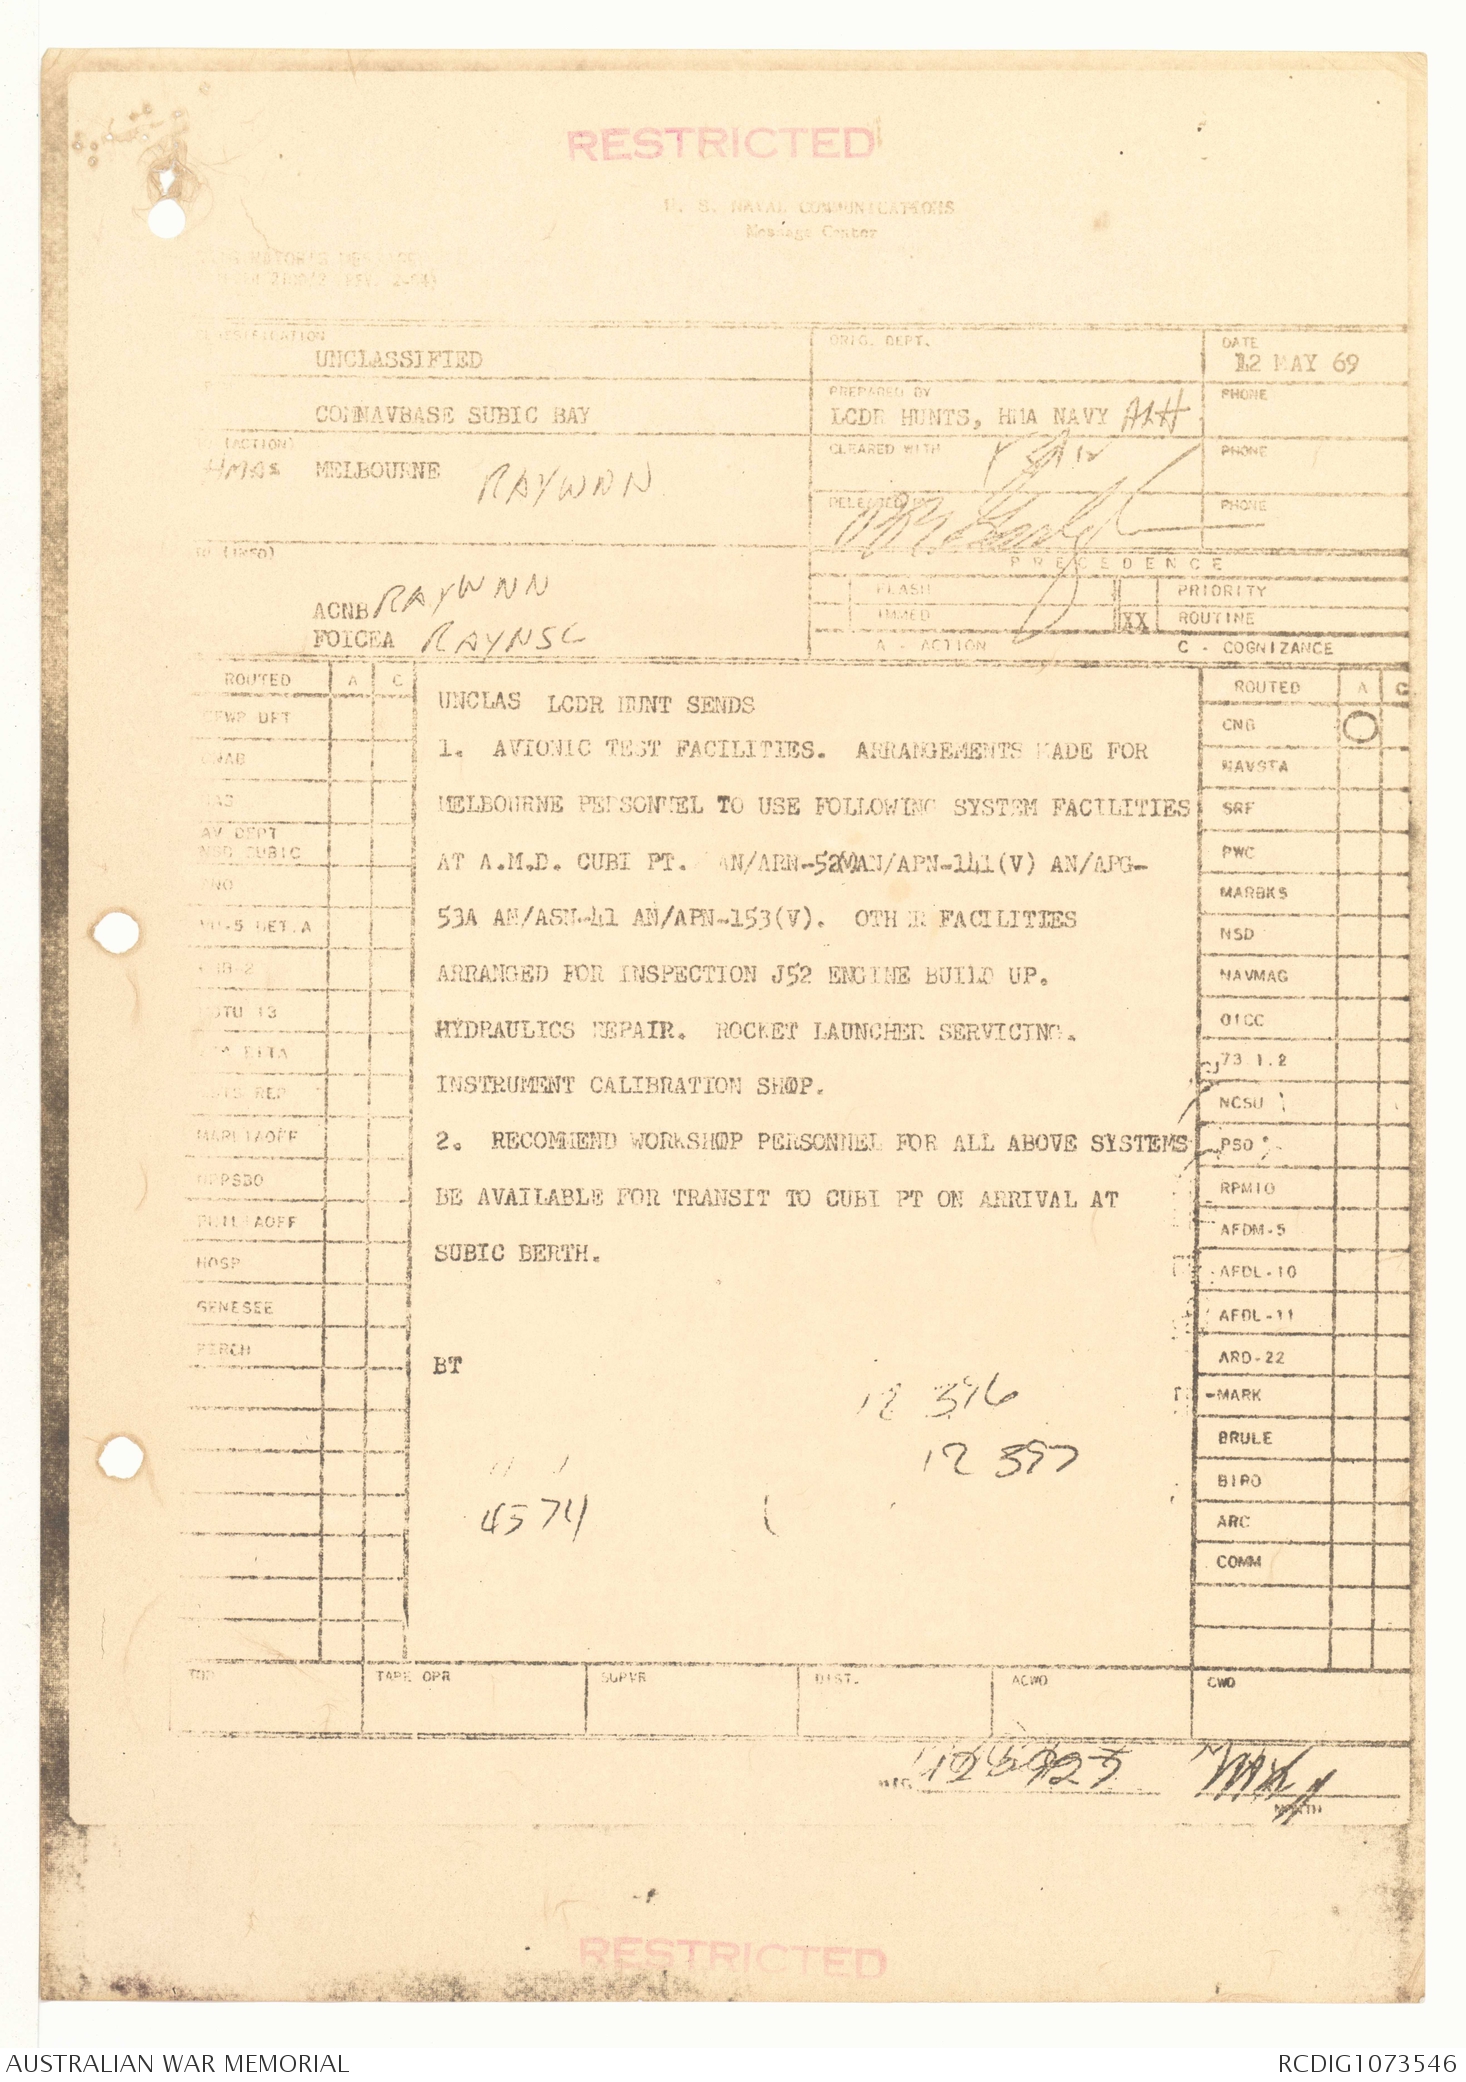 RESTRICTED
U. S. NAVAL COMMUNICATIONS
Message Center
CLASSIFICATION
UNCLASSIFIED
ORIG. DEPT.
DATE
12 MAY 69
COMNAVBASE SUBIC BAY
PREPARED BY
LCDR HUNTS, HMA NAVY
PHONE
TO (ACTION)
HMAS MELBOURNE RAYWNN
CLEARED WITH
PHONE
RELEASED BY
PHONE
TO (INFO)
ACNB RAYWNN
FOICEA RAYNSC
PRECEDENCE
FLASH
PRIORITY
IMMED
XX ROUTINE
A - ACTION
C - COGNIZANCE
ROUTED A C
UNCLAS LCDR HUNT SENDS
1. AVIONIC TEST FACILITIES. ARRANGEMENTS MADE FOR
MELBOURNE PERSONNEL TO USE FOLLOWING SYSTEM FACILITIES
AT A.M.D. CUBI PT. AN/ARN-52(V)AN/APN-141(V) AN/APG-
53A AN/ASN-41 AN/APN-153(V). OTH R FACILITIES
ARRANGED FOR INSPECTION J52 ENGINE BUILD UP.
HYDRAULICS REPAIR. ROCKET LAUNCHER SERVICING.
INSTRUMENT CALIBRATION SHOP.
2. RECOMMEND WORKSHOP PERSONNEL FOR ALL ABOVE SYSTEMS
BE AVAILABLE FOR TRANSIT TO CUBI PT ON ARRIVAL AT
SUBIC BERTH.
BT
12 396
12 397
4574
AV DEPT
NSD CUBIC
MARLIAOFF
PHILIAOFF
HOSP
GENESEE
PERCH
ROUTED A C
CNB
NAVSTA
SRF
PWC
MARBKS
NSD
NAVMAG
OICC
73 1.2
NCSU
PSO
RPMIO
AFDM-5
AFDL-10
AFDL-11
ARD-22
MARK
BRULE
BIRO
ARC
COMM
TOR
TAPE OPR
SUPVR
DIST.
ACWO
CWO
MONTH
RESTRICTED
AUSTRALIAN WAR MEMORIAL
RCDIG1073546